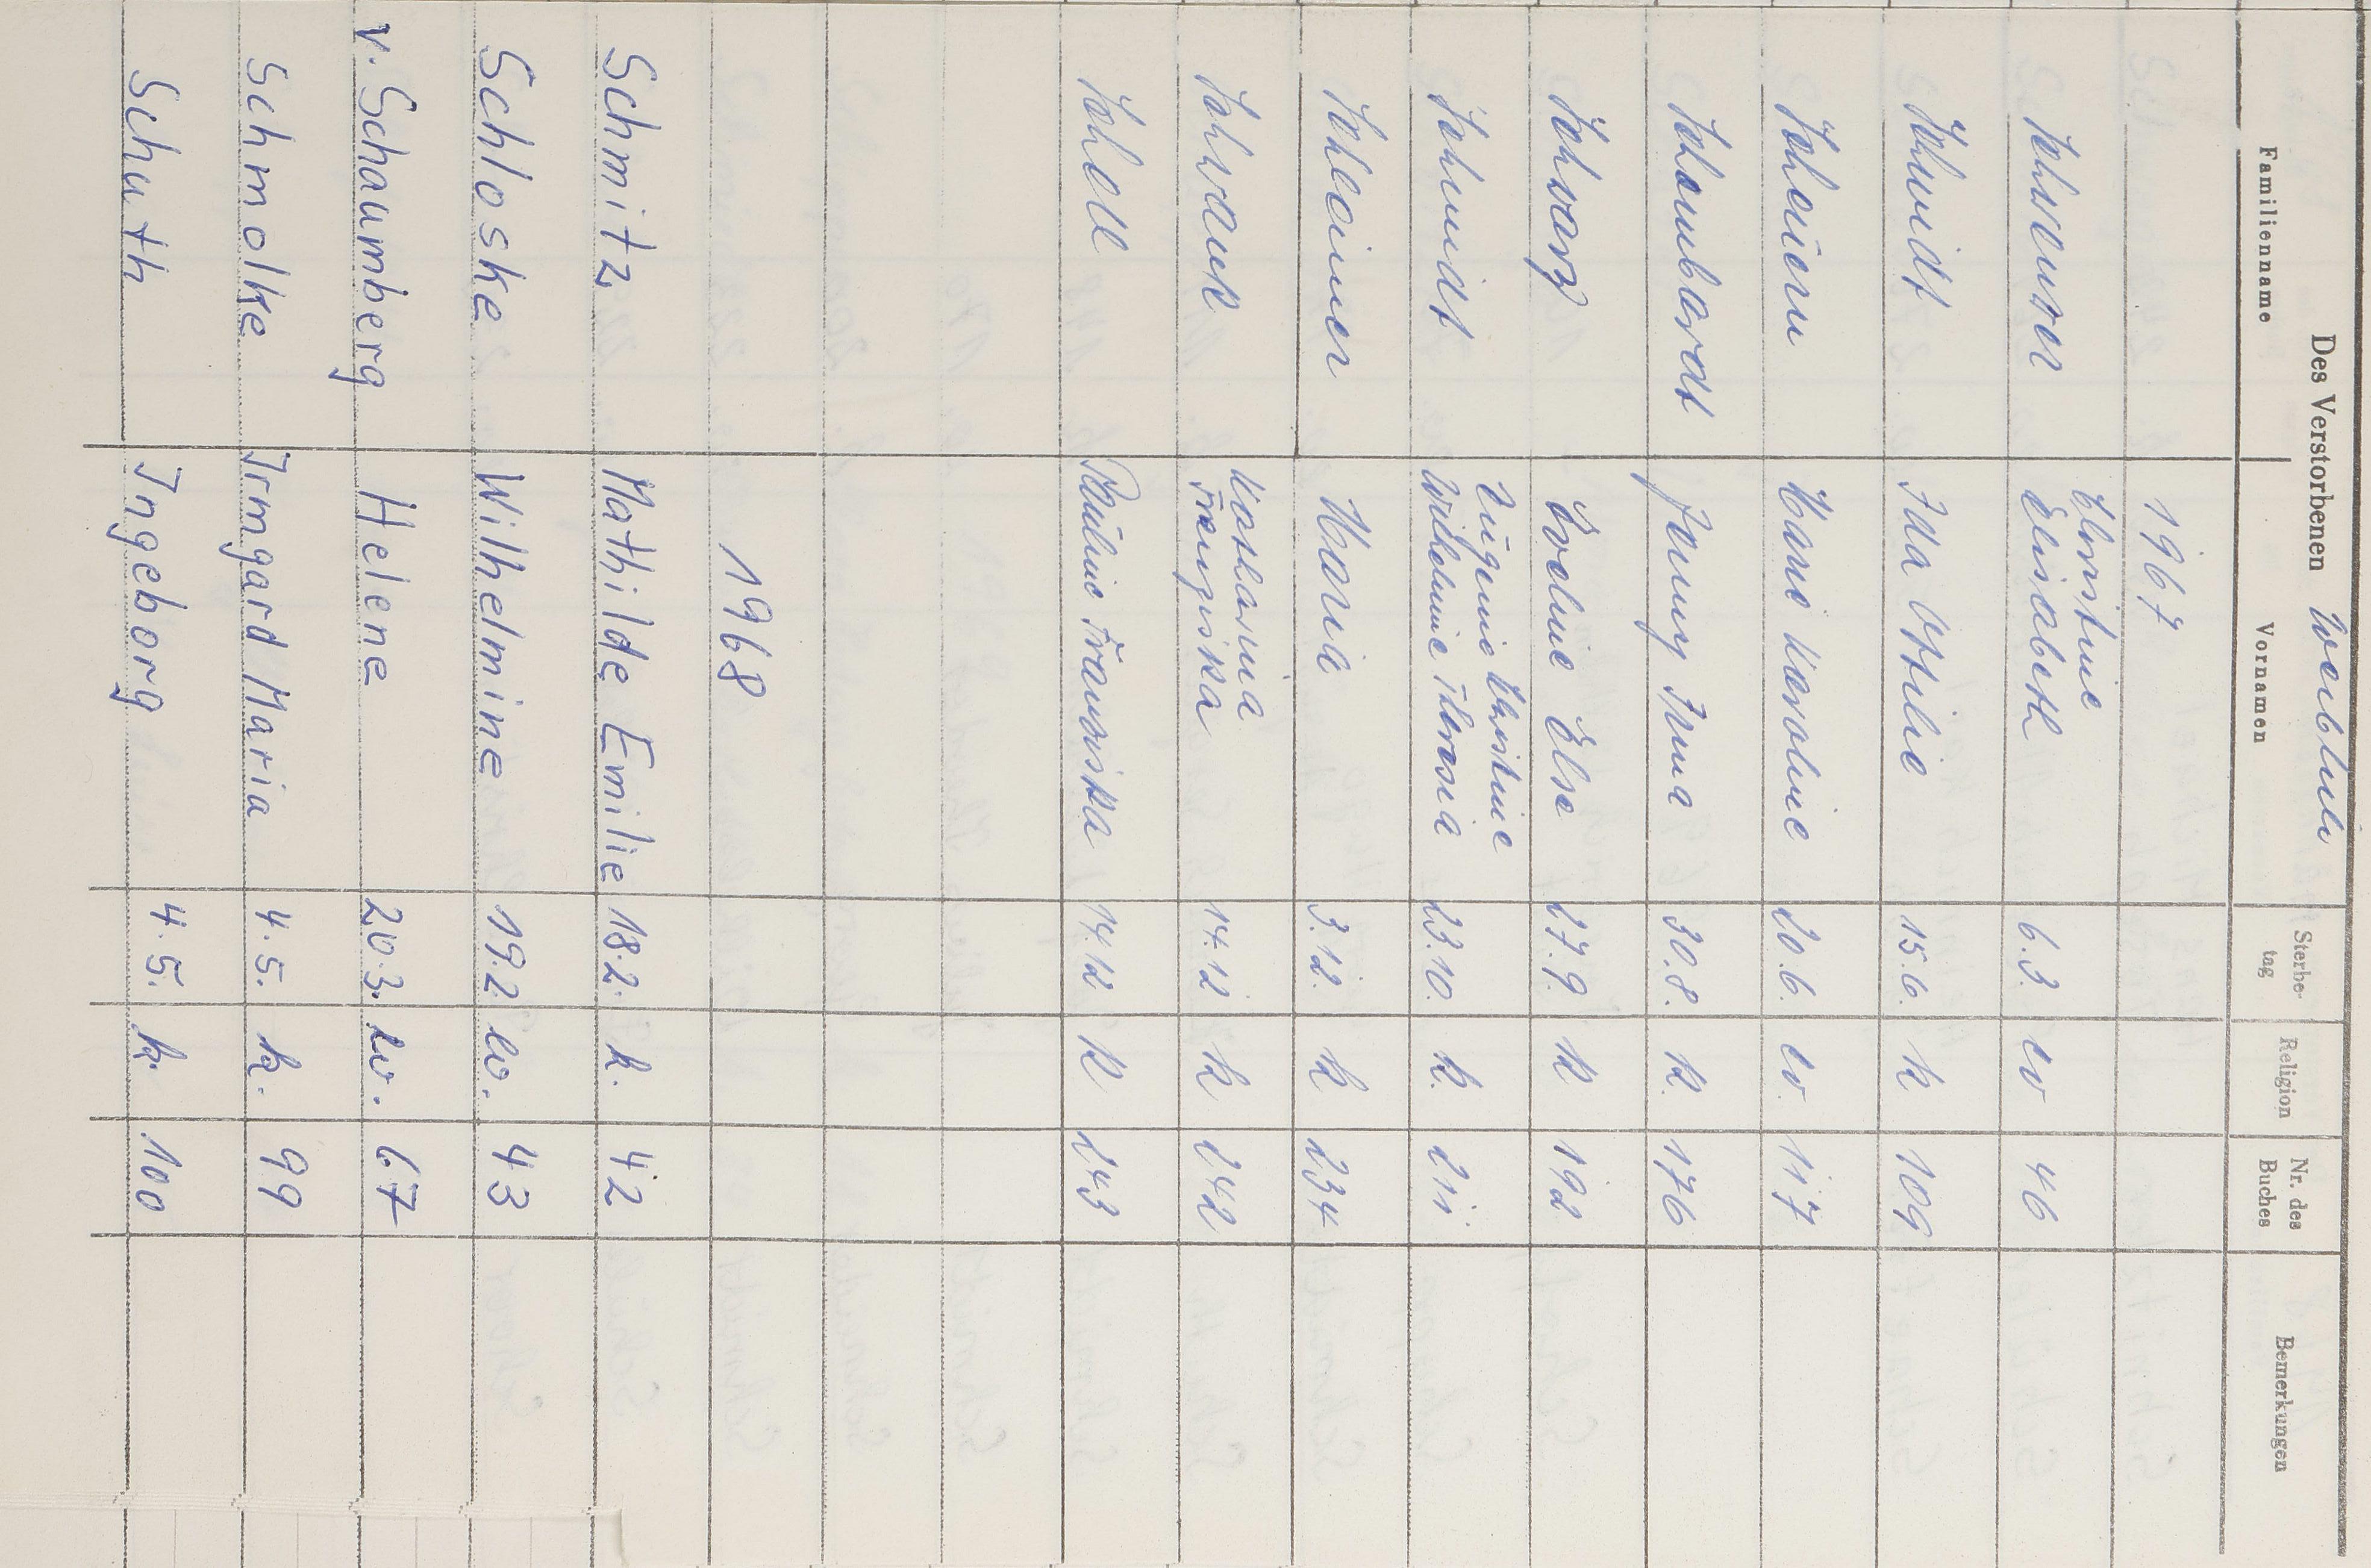 Des Verstorbenen weiblich
Familienname Vornamen Sterbe-tag Religion Nr. des Buches Bemerkungen
1967
Christine
Elisabeth 6.3. ev 46
Schmidt Ida Ottilie 15.6. k 109
Marie Karoline 20.6. ev. 117
Schombardt Jenny Irma 30.8. k. 176
Schwarz Eveline Else 27.9. k 192
Eugenie Christine
Schmidt Wilhelmine Theresia 23.10. k. 211
Schleimer Maria 3.12. k 234
Katharina
Schwank Franziska 14.12 k 242
Scholl Pauline Franziska 14.12 k 243
1968
Schmitz Mathilde Emilie 18.2. k. 42
Schloske Wilhelmine 19.2. ev. 43
v. Schaumberg Helene 20.3. ev. 67
Schmolke Irmgard Maria 4.5. k. 99
Schuth Ingeborg 4.5. k. 100